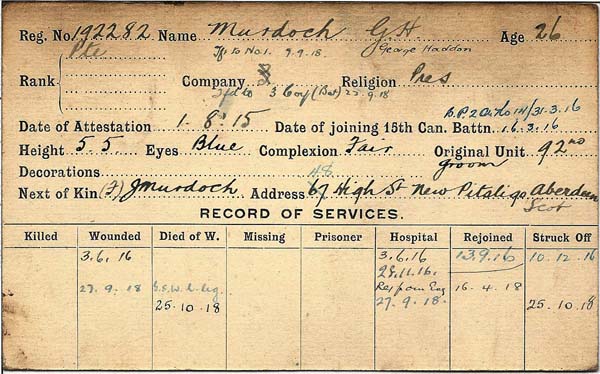 Reg. No. 192282 Name Murdoch G H Age 26
Pte Tfs to No.1. 9.9.18 George Haddon
Rank Company 3 Religion Pres
Tfd to 3 Coy (Bat) 23.9.18
D.P.2 O. 141/31.3.16
Date of Attestation 1.8.15 Date of joining 15th Can. Battn. 16.3.16
Height 5 5 Eyes Blue Complexion Fair Original Unit 92nd
Decorations 48 Groom
Next of Kin (F) J Murdoch Address 67 High St New Pitsligo Aberdeen
Scot
RECORD OF SERVICES.
Killed Wounded Died of W. Missing Prisoner Hospital Rejoined Struck Off
3.6.16 3.6.16 13.9.16 10.12.16
25.11.16.
27.9.18 G.S.W. L. leg. Resp om Eng 16.4.18
25.10.18 27.9.18. 25.10.18